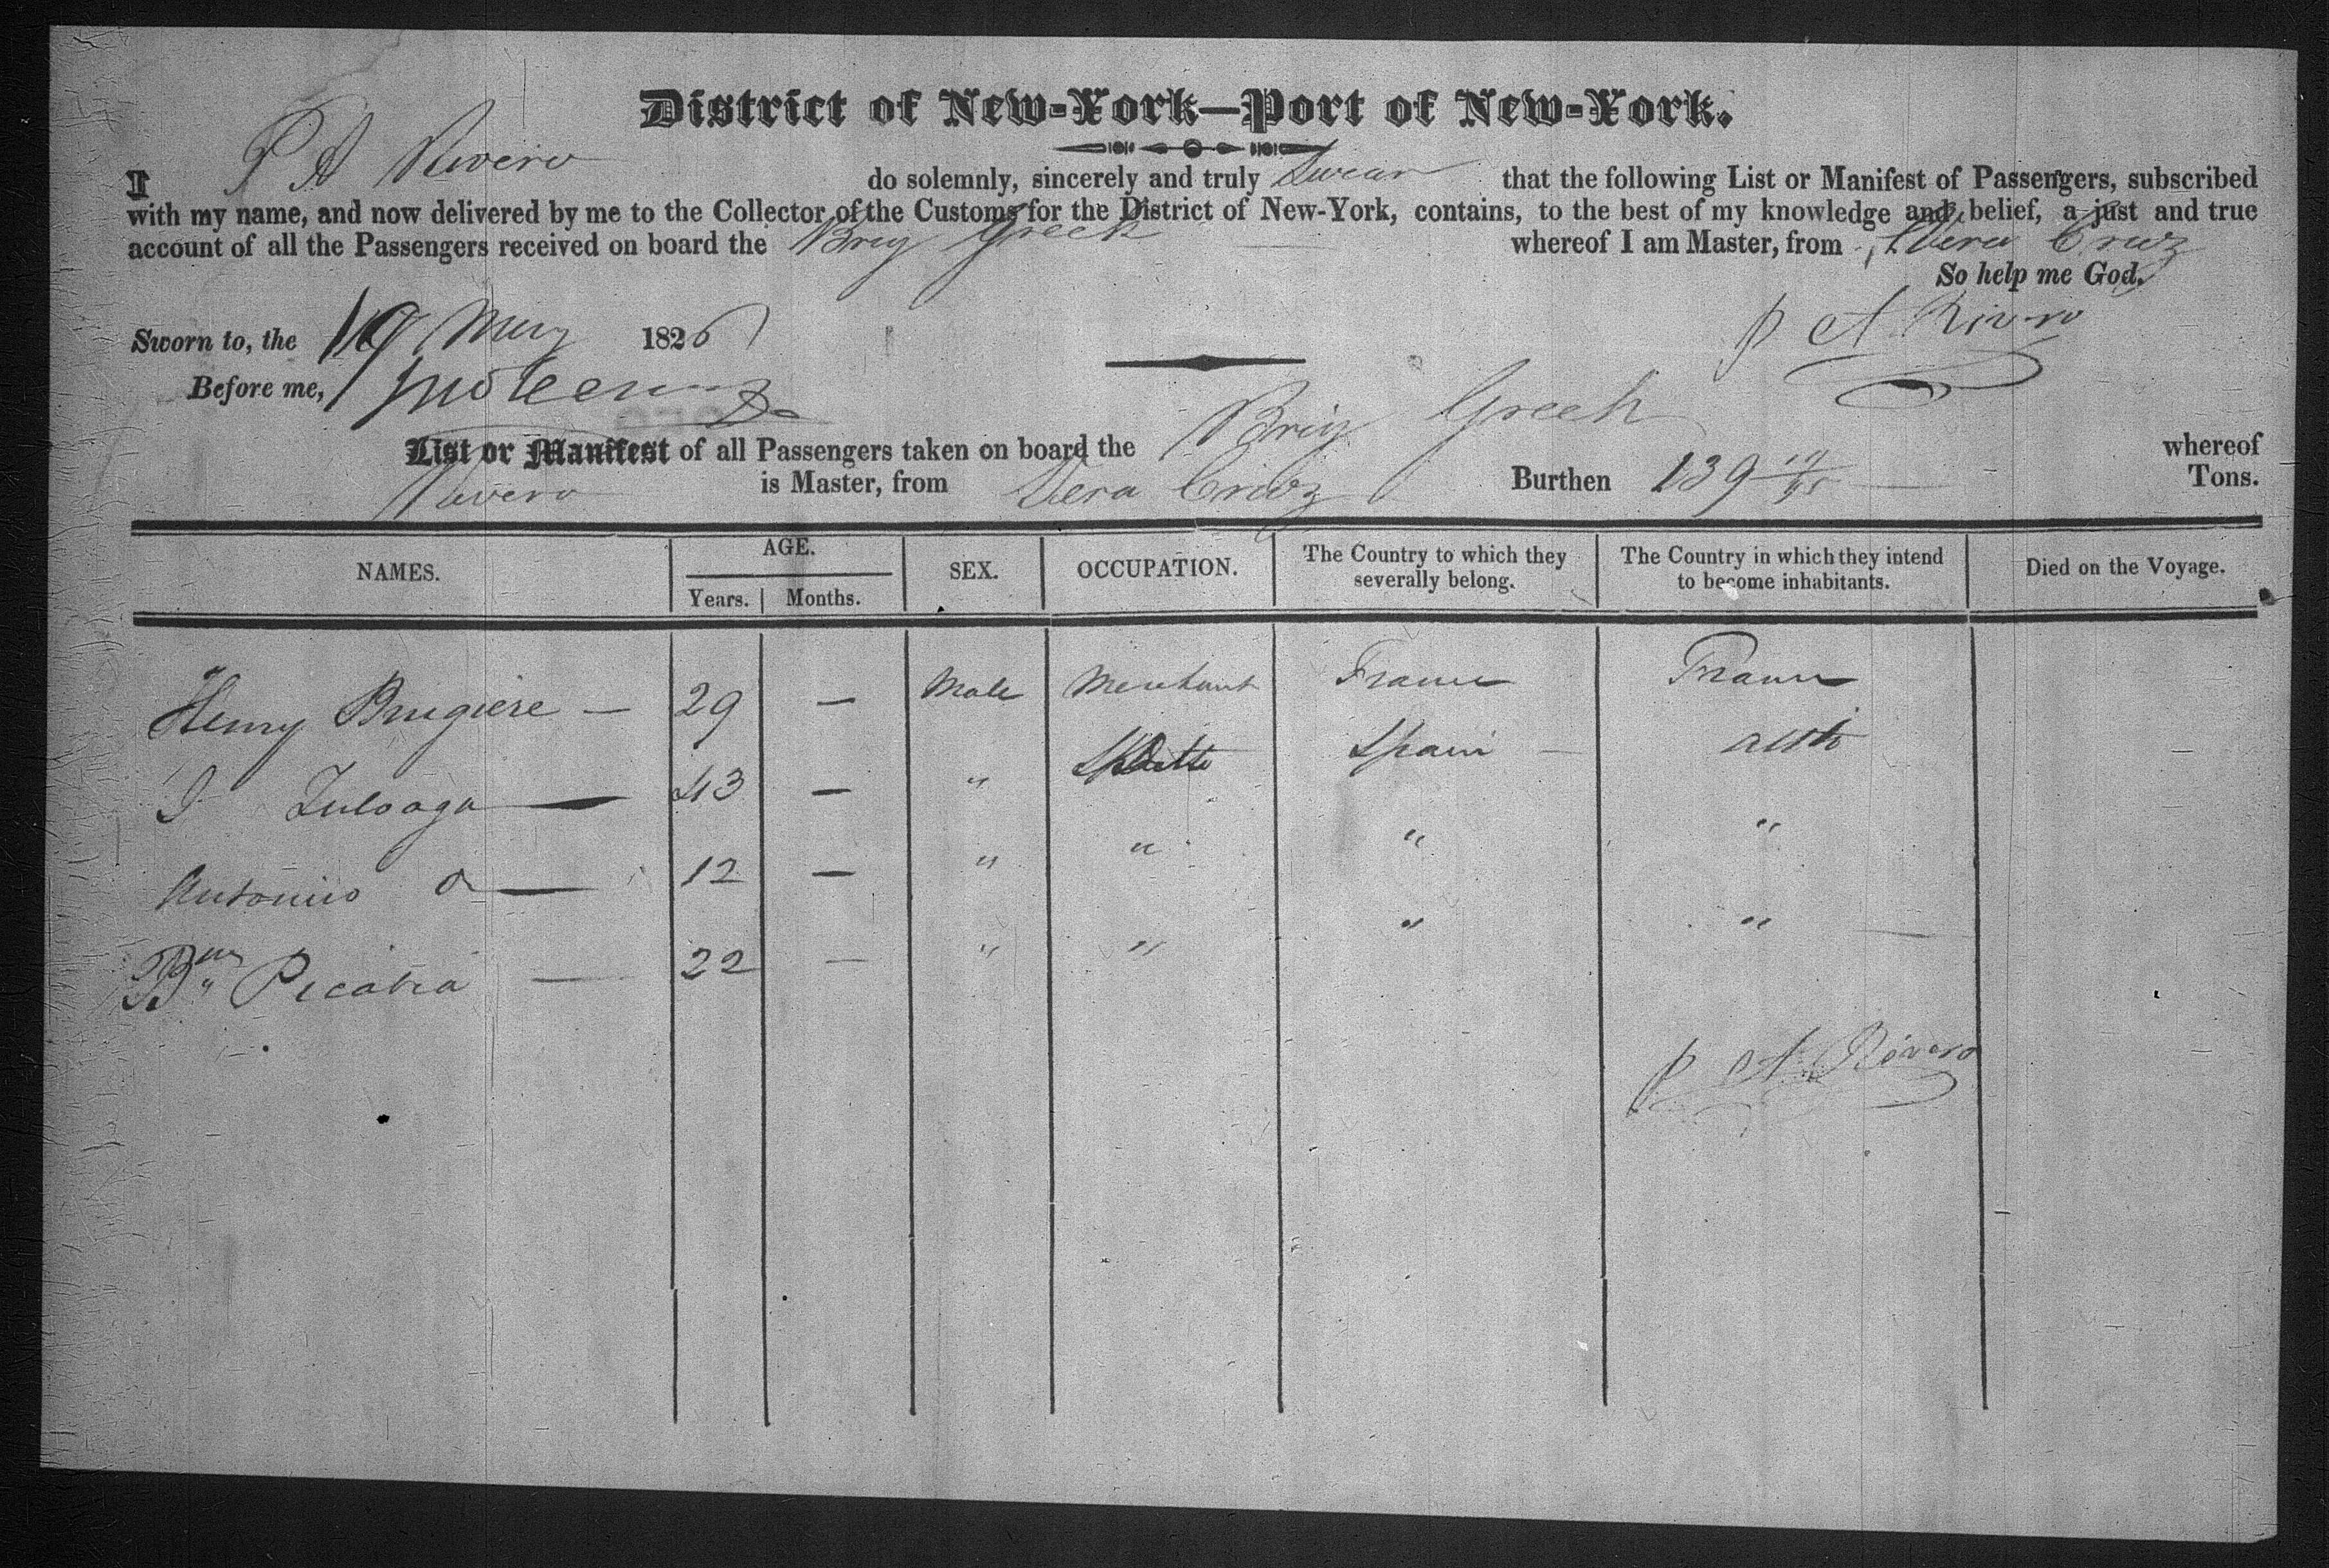 District of New-York—Port of New-York.
I P A Rivero do solemnly, sincerely and truly Swear that the following List or Manifest of Passengers, subscribed
with my name, and now delivered by me to the Collector of the Customs for the District of New-York, contains, to the best of my knowledge and belief, a just and true
account of all the Passengers received on board the Brig Greek whereof I am Master, from Vera Cruz
So help me God.
Sworn to, the 19 May 1826 P A Rivero
Before me,
List or Manifest of all Passengers taken on board the Brig Greek whereof
Rivero is Master, from Vera Cruz Burthen 139 Tons.
NAMES. AGE. SEX. OCCUPATION. The Country to which they severally belong. The Country in which they intend to become inhabitants. Died on the Voyage.
Years. Months.
Henry Brugiere — 29 — Male Merchant France France
J Zuloaga — 43 — " Ditto Spain —
Antonio — 12 — " " " "
Picabia — 22 — " " " "
P A Rivero